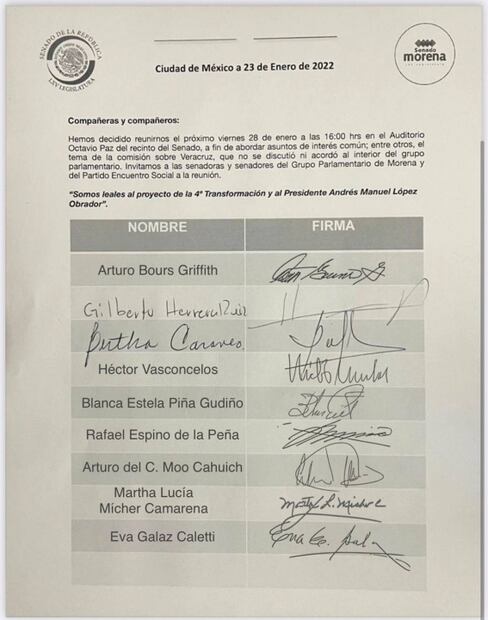 SENADO DE LA REPÚBLICA
LXV LEGISLATURA
Senado
morena
Ciudad de México a 23 de Enero de 2022
Compañeras y compañeros:
Hemos decidido reunirnos el próximo viernes 28 de enero a las 16:00 hrs en el Auditorio
Octavio Paz del recinto del Senado, a fin de abordar asuntos de interés común; entre otros, el
tema de la comisión sobre Veracruz, que no se discutió ni acordó al interior del grupo
parlamentario. Invitamos a las senadoras y senadores del Grupo Parlamentario de Morena y
del Partido Encuentro Social a la reunión.
"Somos leales al proyecto de la 4ª Transformación y al Presidente Andrés Manuel López
Obrador".
NOMBRE FIRMA
Arturo Bours Griffith
Gilberto Herrera Ruiz
Bertha Caraveo
Héctor Vasconcelos
Blanca Estela Piña Gudiño
Rafael Espino de la Peña
Arturo del C. Moo Cahuich
Martha Lucía
Mícher Camarena
Eva Galaz Caletti